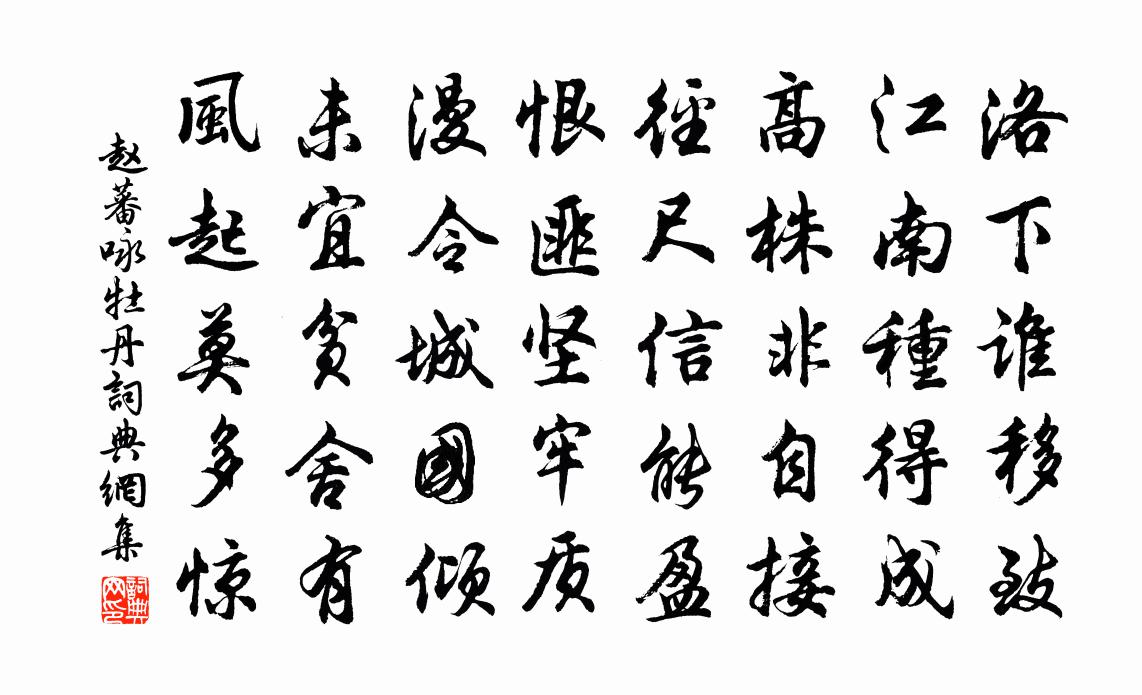 洛下谁移致
江南種得成
高株非自接
徑尺信能盈
恨匪坚牢质
漫令城國倾
未宜贫舍有
風起莫多惊
赵蕃咏牡丹詞典網集
詞典
网印